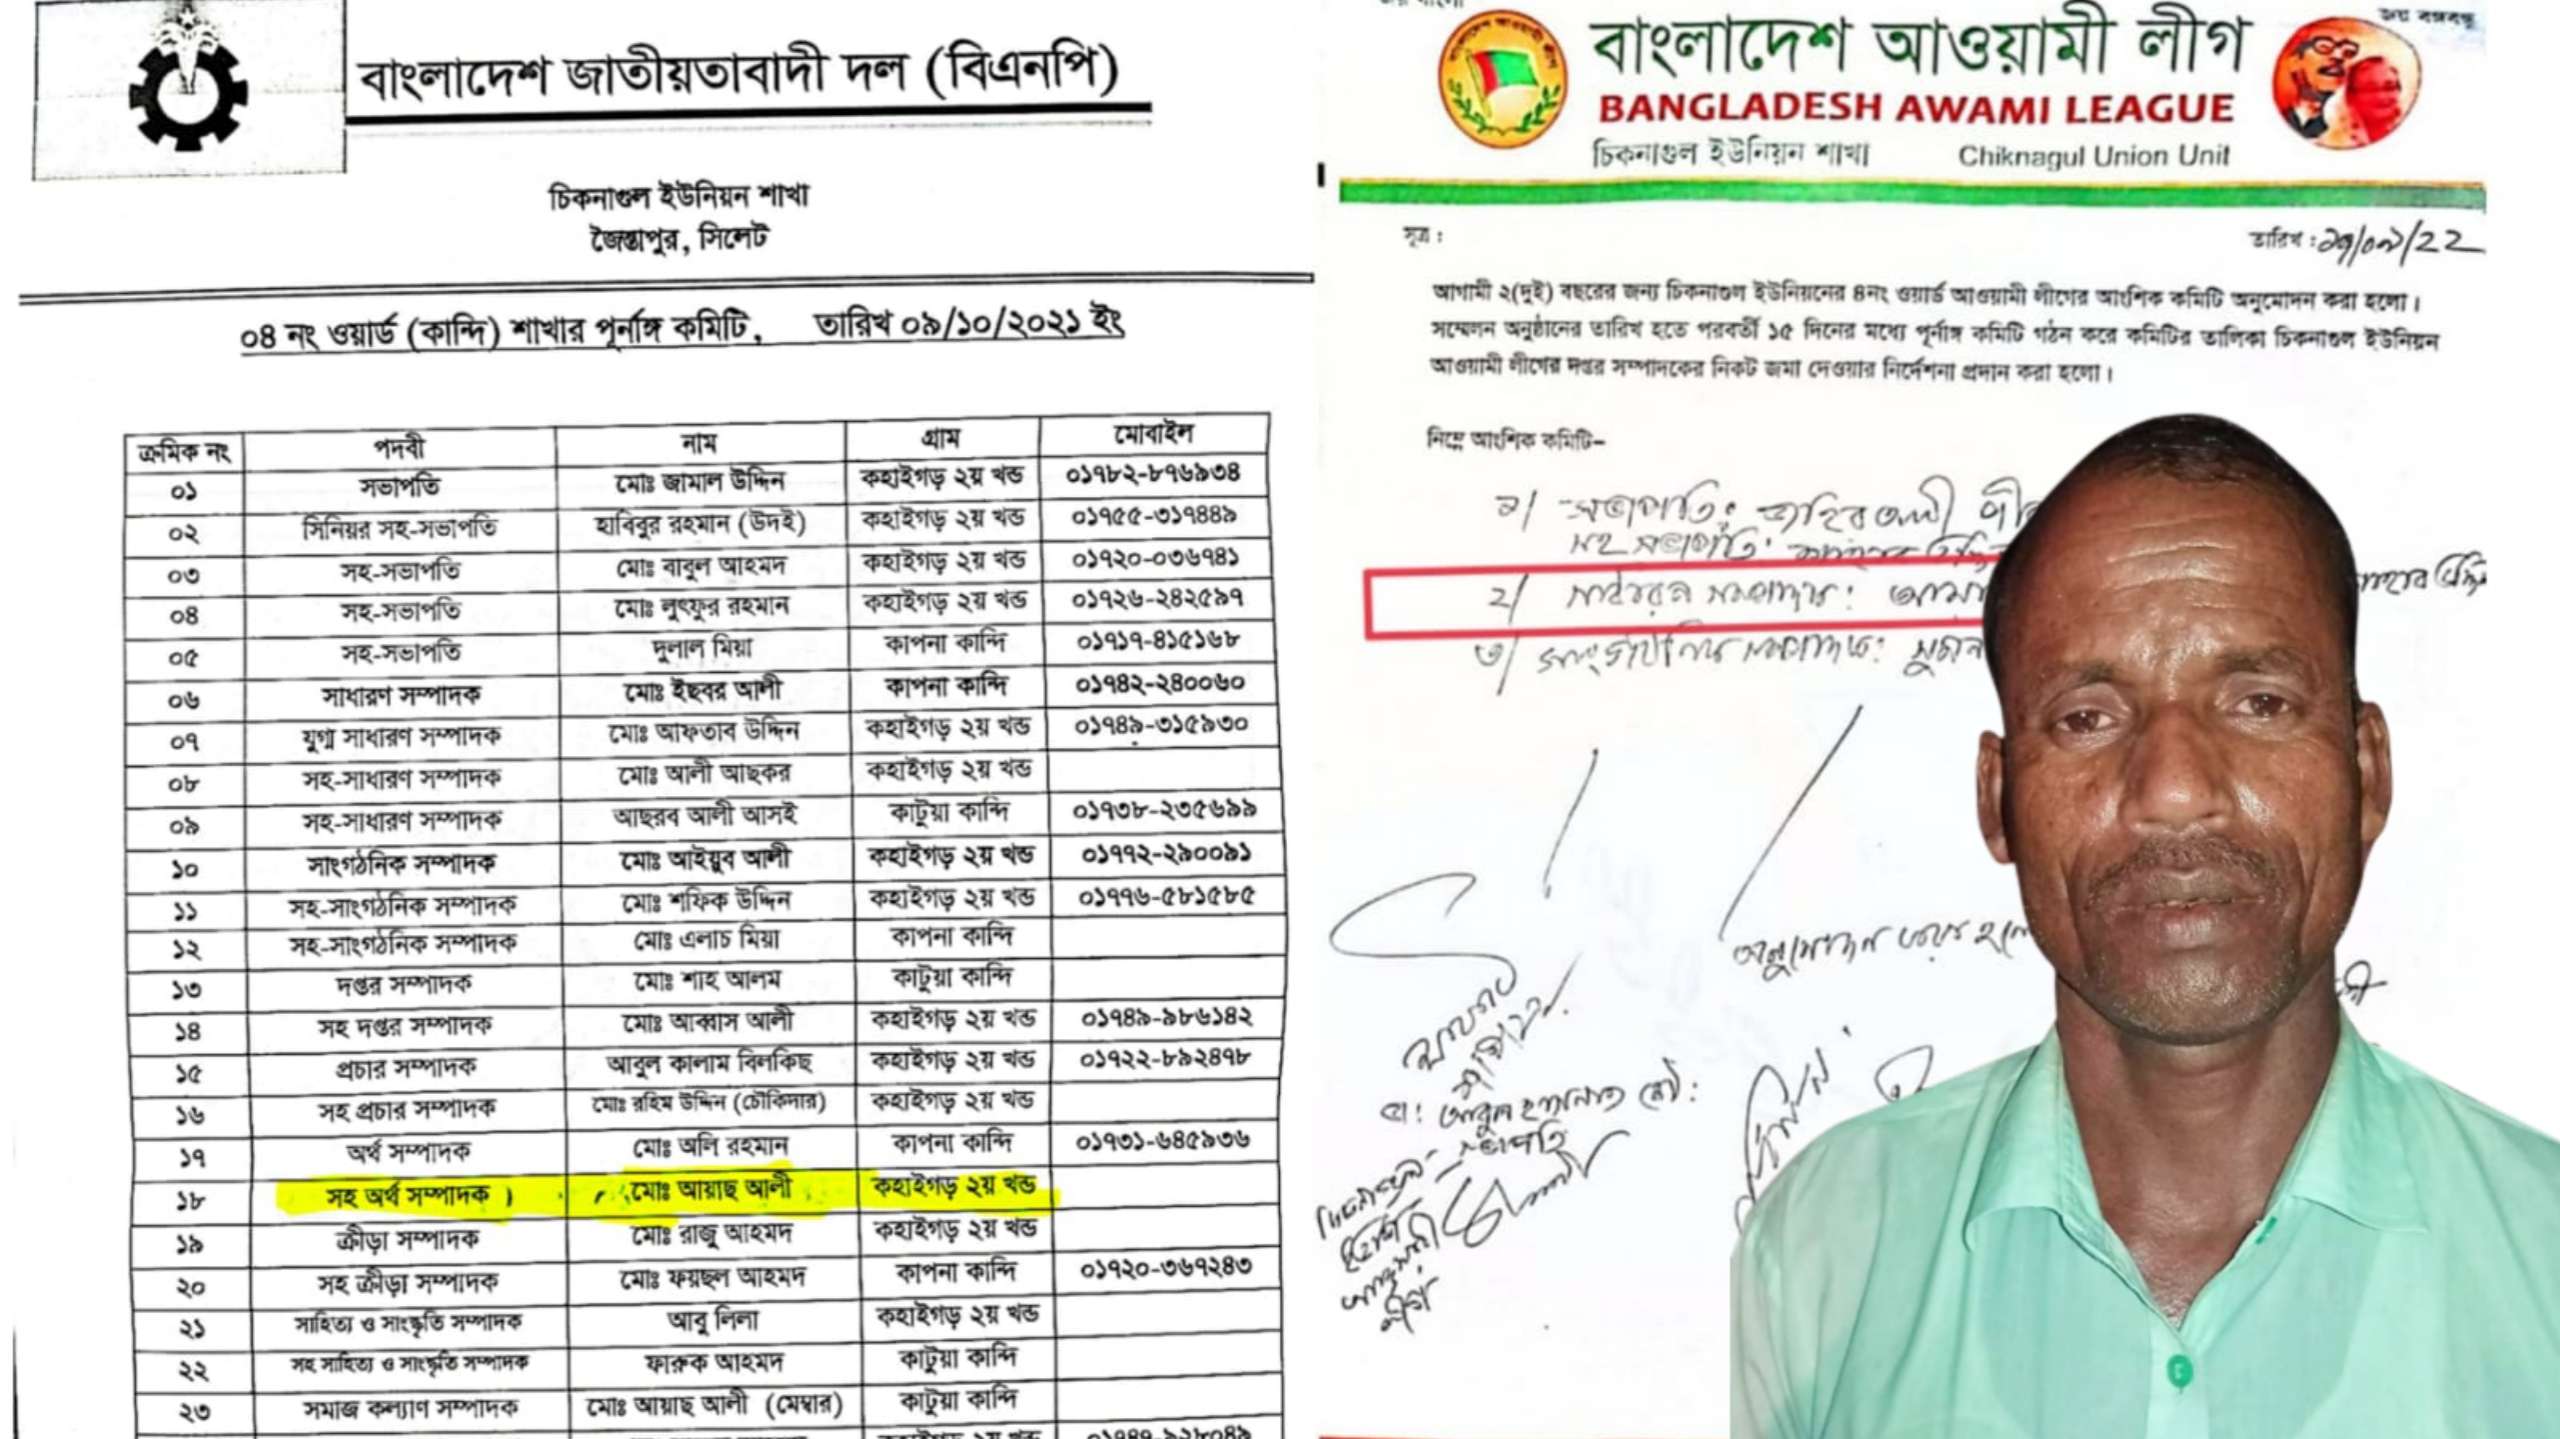 বাংলাদেশ জাতীয়তাবাদী দল (বিএনপি)
চিকনাগুল ইউনিয়ন শাখা
জৈন্তাপুর, সিলেট
০৪ নং ওয়ার্ড (কান্দি) শাখার পূর্নাঙ্গ কমিটি, তারিখ ০৯/১০/২০২১ ইং
ক্রমিক নং পদবী নাম গ্রাম মোবাইল
০১ সভাপতি মোঃ জামাল উদ্দিন কহাইগড় ২য় খন্ড ০১৭৮২-৮৭৬৯৩৪
০২ সিনিয়র সহ-সভাপতি হাবিবুর রহমান (উদই) কহাইগড় ২য় খন্ড ০১৭৫৫-৩১৭৪৪৯
০৩ সহ-সভাপতি মোঃ বাবুল আহমদ কহাইগড় ২য় খন্ড ০১৭২০-০৩৬৭৪১
০৪ সহ-সভাপতি মোঃ লুৎফুর রহমান কহাইগড় ২য় খন্ড ০১৭২৬-২৪২৫৯৭
০৫ সহ-সভাপতি দুলাল মিয়া কাপনা কান্দি ০১৭১৭-৪১৫১৬৮
০৬ সাধারণ সম্পাদক মোঃ ইছবর আলী কাপনা কান্দি ০১৭৪২-২৪০০৬০
০৭ যুগ্ম সাধারণ সম্পাদক মোঃ আফতাব উদ্দিন কহাইগড় ২য় খন্ড ০১৭৪৯-৩১৫৯৩০
০৮ সহ-সাধারণ সম্পাদক মোঃ আলী আছকর কহাইগড় ২য় খন্ড
০৯ সহ-সাধারণ সম্পাদক আছরব আলী আসই কাটুয়া কান্দি ০১৭৩৮-২৩৫৬৯৯
১০ সাংগঠনিক সম্পাদক মোঃ আইয়ুব আলী কহাইগড় ২য় খন্ড ০১৭৭২-২৯০০৯১
১১ সহ-সাংগঠনিক সম্পাদক মোঃ শফিক উদ্দিন কহাইগড় ২য় খন্ড ০১৭৭৬-৫৮১৫৮৫
১২ সহ-সাংগঠনিক সম্পাদক মোঃ এলাচ মিয়া কাপনা কান্দি
১৩ দপ্তর সম্পাদক মোঃ শাহ আলম কাটুয়া কান্দি
১৪ সহ দপ্তর সম্পাদক মোঃ আব্বাস আলী কহাইগড় ২য় খন্ড ০১৭৪৯-৯৮৬১৪২
১৫ প্রচার সম্পাদক আবুল কালাম বিলকিছ কহাইগড় ২য় খন্ড ০১৭২২-৮৯২৪৭৮
১৬ সহ প্রচার সম্পাদক মোঃ রহিম উদ্দিন (চৌকিদার) কহাইগড় ২য় খন্ড
১৭ অর্থ সম্পাদক মোঃ অলি রহমান কাপনা কান্দি ০১৭৩১-৬৪৫৯৩৬
১৮ সহ অর্থ সম্পাদক। মোঃ আয়াছ আলী কহাইগড় ২য় খন্ড
১৯ ক্রীড়া সম্পাদক মোঃ রাজু আহমদ কহাইগড় ২য় খন্ড
২০ সহ ক্রীড়া সম্পাদক মোঃ ফয়ছল আহমদ কাপনা কান্দি ০১৭২০-৩৬৭২৪৩
২১ সাহিত্য ও সাংস্কৃতি সম্পাদক আবু লিলা কহাইগড় ২য় খন্ড
২২ সহ সাহিত্য ও সাংস্কৃতি সম্পাদক ফারুক আহমদ কাটুয়া কান্দি
২৩ সমাজ কল্যাণ সম্পাদক মোঃ আয়াছ আলী (মেম্বার) কাটুয়া কান্দি
জয় বঙ্গবন্ধু
বাংলাদেশ আওয়ামী লীগ
BANGLADESH AWAMI LEAGUE
চিকনাগুল ইউনিয়ন শাখা Chiknagul Union Unit
সূত্র : তারিখ : ১৭/০৯/২২
আগামী ২(দুই) বছরের জন্য চিকনাগুল ইউনিয়নের ৪নং ওয়ার্ড আওয়ামী লীগের আংশিক কমিটি অনুমোদন করা হলো।
সম্মেলন অনুষ্ঠানের তারিখ হতে পরবর্তী ১৫ দিনের মধ্যে পূর্নাঙ্গ কমিটি গঠন করে কমিটির তালিকা চিকনাগুল ইউনিয়ন
আওয়ামী লীগের দপ্তর সম্পাদকের নিকট জমা দেওয়ার নির্দেশনা প্রদান করা হলো।
নিম্নে আংশিক কমিটি–
১/ সভাপতি:
সহ সভাপতি:
২/ সাধারন সম্পাদক:
৩/ সাংগঠনিক সম্পাদক:
অনুমোদন করা